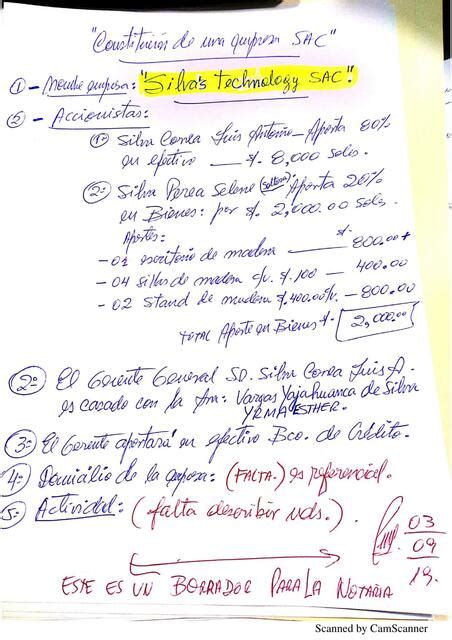 "Constitución de una empresa SAC"
① - Nombre empresa: "Silva's Technology SAC".
② - Accionistas:
①- Silva Correa Luis Antonio - Aporta 80%
en efectivo — S/. 8,000 soles.
②: Silva Perea Selene (soltera) Aporta 20%
en Bienes: por S/. 2,000.00 soles.
Aportes: S/.
- 01 escritorio de madera — 800.00 +
- 04 sillas de madera c/u. S/. 100 — 400.00
- 02 Stand de madera S/. 400.00 c/u. — 800.00
TOTAL Aporte en Bienes S/. 2,000.00
②: El Gerente General SD. Silva Correa Luis A.
es casado con la Sra: Vargas Yajahuanca de Silva
YRMA ESTHER.
③: El Gerente aportará en efectivo Bco. de Crédito.
④: Domicilio de la empresa: (FALTA.) es referencial.
⑤: Actividad: (falta describir uds.).
03
09
19.
ESTE ES UN BORRADOR PARA LA NOTARIA
Scanned by CamScanner